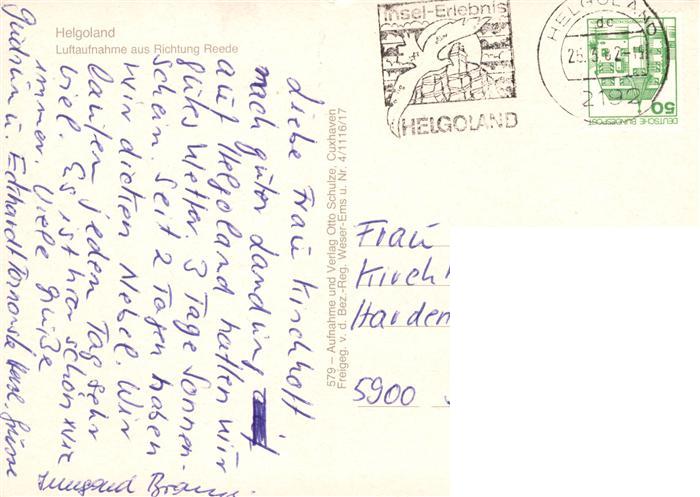 Helgoland
Luftaufnahme aus Richtung Reede
Liebe Frau Kirchhoff
nach guter Landung
auf Helgoland hatten wir
gutes Wetter. 3 Tage Sonnen-
schein. Seit 2 Tagen haben
wir dicken Nebel. Wir
laufen jeden Tag sehr
viel. Es ist hier schön wie
immer. Viele Grüße
Gudrun u.
579 – Aufnahme und Verlag Otto Schulze, Cuxhaven
Freigeg. v. d. Bez.-Reg. Weser-Ems u. Nr. 4/1116/17
Insel-Erlebnis
HELGOLAND
HELGOLAND
dc
2192
50
DEUTSCHE BUNDESPOST
Frau
Kirchh
Harden
5900